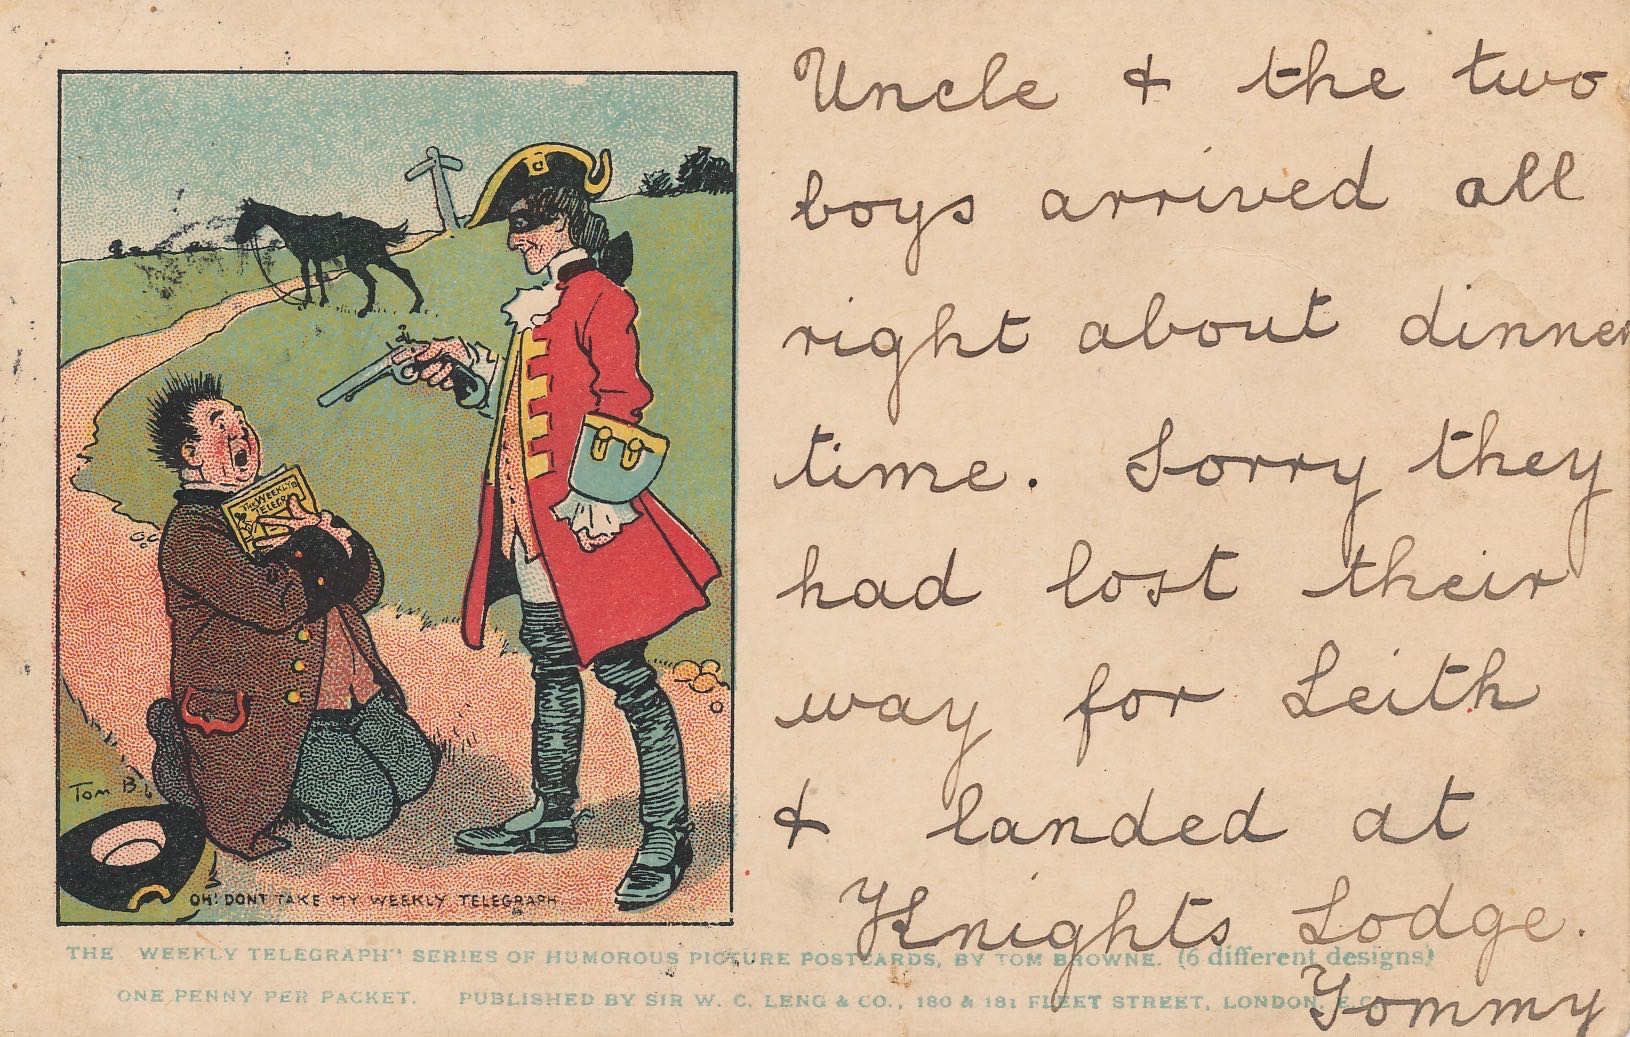 Uncle & the two
boys arrived all
right about dinner
time. Sorry they
had lost their
way for Leith
& landed at
Knights Lodge.
Tommy
THE WEEKLY
TELEGR
TOM B.
OH! DONT TAKE MY WEEKLY TELEGRAPH
THE WEEKLY TELEGRAPH" SERIES OF HUMOROUS PICTURE POSTCARDS, BY TOM BROWNE. (6 different designs)
ONE PENNY PER PACKET. PUBLISHED BY SIR W. C. LENG & CO., 180 & 181 FLEET STREET, LONDON, E.C.